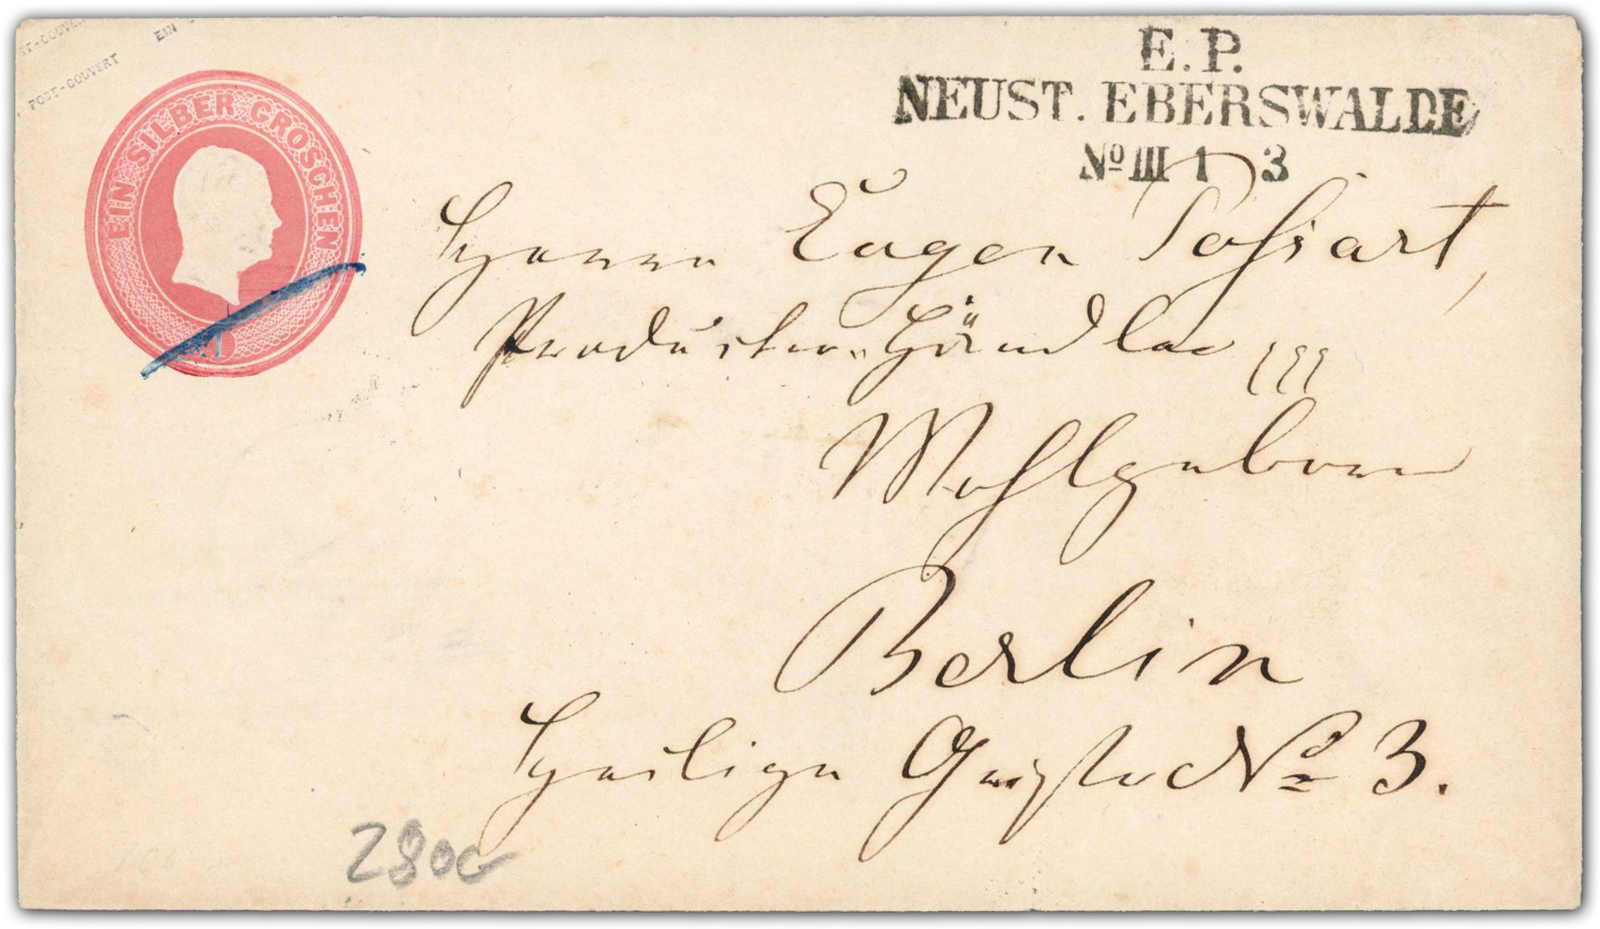 POST-COUVERT
POST-COUVERT EIN
EIN SILBER GROSCHEN
1
E. P.
NEUST. EBERSWALDE
No III 1 3
Herrn Eugen Possart,
Producten-Händler
Wohlgeboren
Berlin
Heilige Geiststr No 3.
280